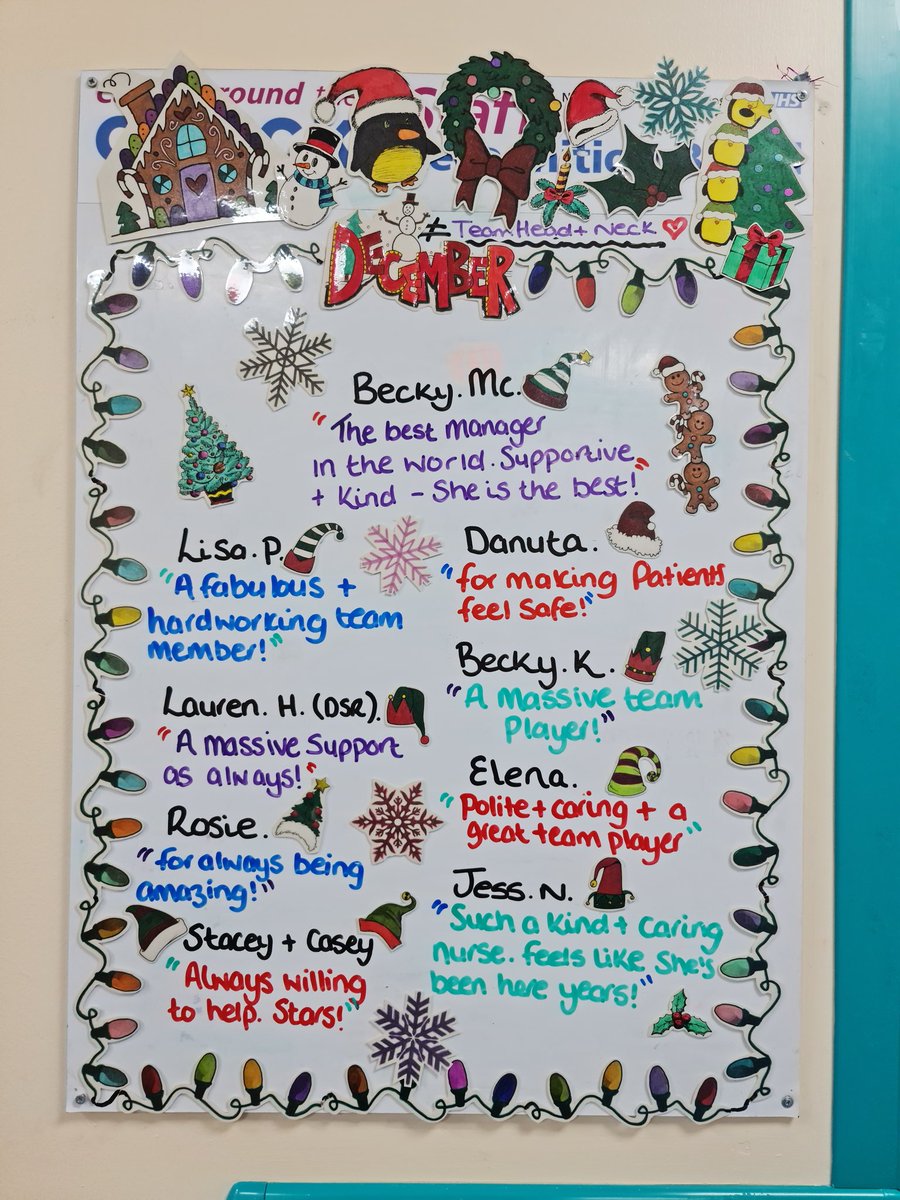 round the
Staf
NHS
DECEMBER
#TeamHead + Neck
Becky. Mc.
"The best manager
in the world. Supportive
+ Kind - She is the best!"
Lisa. P.
"A fabulous +
hardworking team
member!"
Danuta.
"for making Patients
feel safe!"
Lauren. H. (DSR).
"A massive support
as always!"
Becky. K.
"A Massive team
Player!"
Rosie.
"for always being
amazing!"
Elena.
"Polite + caring + a
great team player"
Stacey + Casey
"Always willing
to help. Stars!"
Jess. N.
"Such a kind + caring
nurse. feels like she's
been here years!"